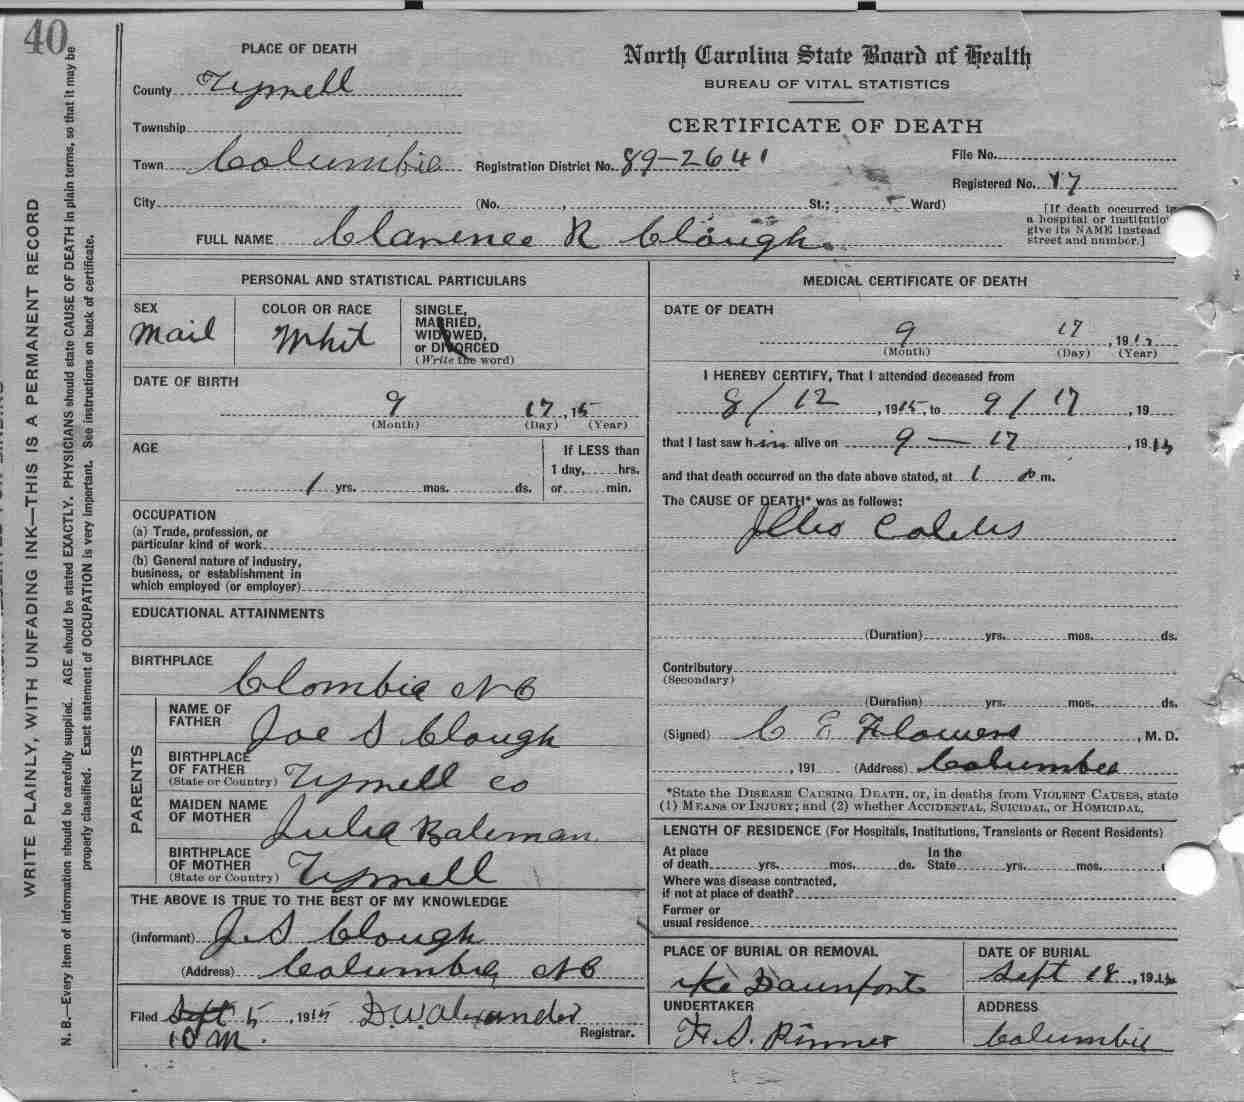 40
PLACE OF DEATH
North Carolina State Board of Health
BUREAU OF VITAL STATISTICS
CERTIFICATE OF DEATH
County Tyrrell
Township
Town Columbia
Registration District No. 89-2641
File No.
Registered No. 17
City
(No. , St.; Ward)
[If death occurred in
a hospital or institution
give its NAME instead
street and number.]
FULL NAME Clarence R Clough.
PERSONAL AND STATISTICAL PARTICULARS
SEX
mail
COLOR OR RACE
Whit
SINGLE,
MARRIED,
WIDOWED,
or DIVORCED
(Write the word)
DATE OF BIRTH
9 17, 15
(Month) (Day) (Year)
AGE
1 yrs. mos. ds.
If LESS than
1 day, hrs.
or min.
OCCUPATION
(a) Trade, profession, or
particular kind of work
(b) General nature of industry,
business, or establishment in
which employed (or employer)
EDUCATIONAL ATTAINMENTS
BIRTHPLACE
Clombia NC
PARENTS
NAME OF
FATHER
Joe S Clough
BIRTHPLACE
OF FATHER
(State or Country)
Tyrrell co
MAIDEN NAME
OF MOTHER
Julia Bateman
BIRTHPLACE
OF MOTHER
(State or Country)
Tyrrell
THE ABOVE IS TRUE TO THE BEST OF MY KNOWLEDGE
(Informant) J.S Clough
(Address) Columbia, NC
Filed Sept 5, 1915 D.W. Alexander
10 M.
Registrar.
MEDICAL CERTIFICATE OF DEATH
DATE OF DEATH
9 17, 191
(Month) (Day) (Year)
I HEREBY CERTIFY, That I attended deceased from
8/12, 1915, to 9/17, 19
that I last saw him alive on 9 — 17, 1915
and that death occurred on the date above stated, at 1 m.
The CAUSE OF DEATH* was as follows:
Colitis
(Duration) yrs. mos. ds.
Contributory
(Secondary)
(Duration) yrs. mos. ds.
(Signed) C E Flowers, M. D.
, 191 (Address) Columbia
*State the DISEASE CAUSING DEATH, or, in deaths from VIOLENT CAUSES, state
(1) MEANS OF INJURY; and (2) whether ACCIDENTAL, SUICIDAL, or HOMICIDAL.
LENGTH OF RESIDENCE (For Hospitals, Institutions, Transients or Recent Residents)
At place
of death yrs. mos. ds.
In the
State yrs. mos.
Where was disease contracted,
if not at place of death?
Former or
usual residence
PLACE OF BURIAL OR REMOVAL
Ike Davenport
DATE OF BURIAL
Sept 18, 1915
UNDERTAKER
H. S. Pinner
ADDRESS
Columbia
WRITE PLAINLY, WITH UNFADING INK—THIS IS A PERMANENT RECORD
N. B.—Every item of information should be carefully supplied. AGE should be stated EXACTLY. PHYSICIANS should state CAUSE OF DEATH in plain terms, so that it may be
properly classified. Exact statement of OCCUPATION is very important. See instructions on back of certificate.